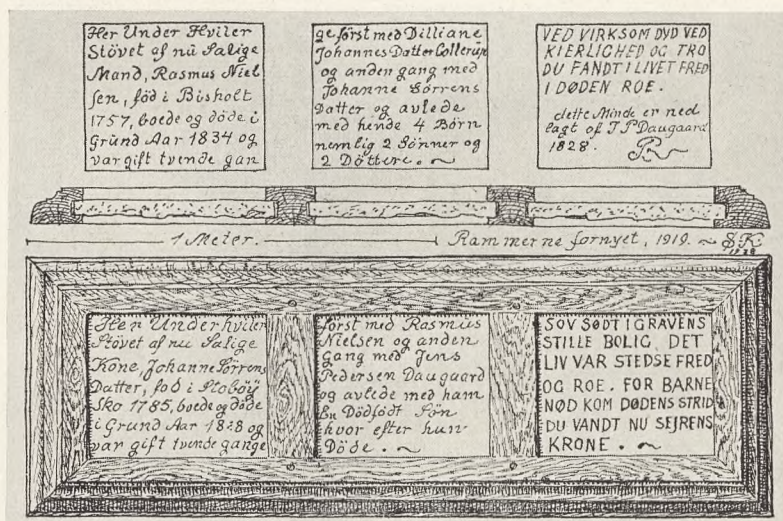 Her Under Hviler
Stövet af nu Salige
Mand, Rasmus Niel
sen, föd i Bisholt
1757, boede og döde i
Grund Aar 1834 og
var gift tvende gan
ge först med Dilliane
Johannes Datter Collerup
og anden gang med
Johanne Sörrens
Datter og avlede
med hende 4 Börn
nemlig 2 Sönner og
2 Döttere.
VED VIRKSOM DYD VED
KIERLIGHED OG TRO
DU FANDT I LIVET FRED
I DØDEN ROE.
dette Minde er ned
lagt of J P Daugaard
1828.
1 Meter.
Rammerne fornyet, 1919. S.K.
1928
Her Underhviler
Stövet af nu Salige
Kone, Johanne Sörrens
Datter, föd i Stobÿ
Sko 1785, boede og döde
i Grund Aar 1828 og
var gift tvende gange
först med Rasmus
Nielsen og anden
Gang med Jens
Pedersen Daugaard
og avlede med ham
En Dödfödt Sön
hvor efter hun
Döde.
SOV SØDT I GRAVENS
STILLE BOLIG, DET
LIV VAR STEDSE FRED
OG ROE. FOR BARNE
NØD KOM DØDENS STRID
DU VANDT NU SEJRENS
KRONE.